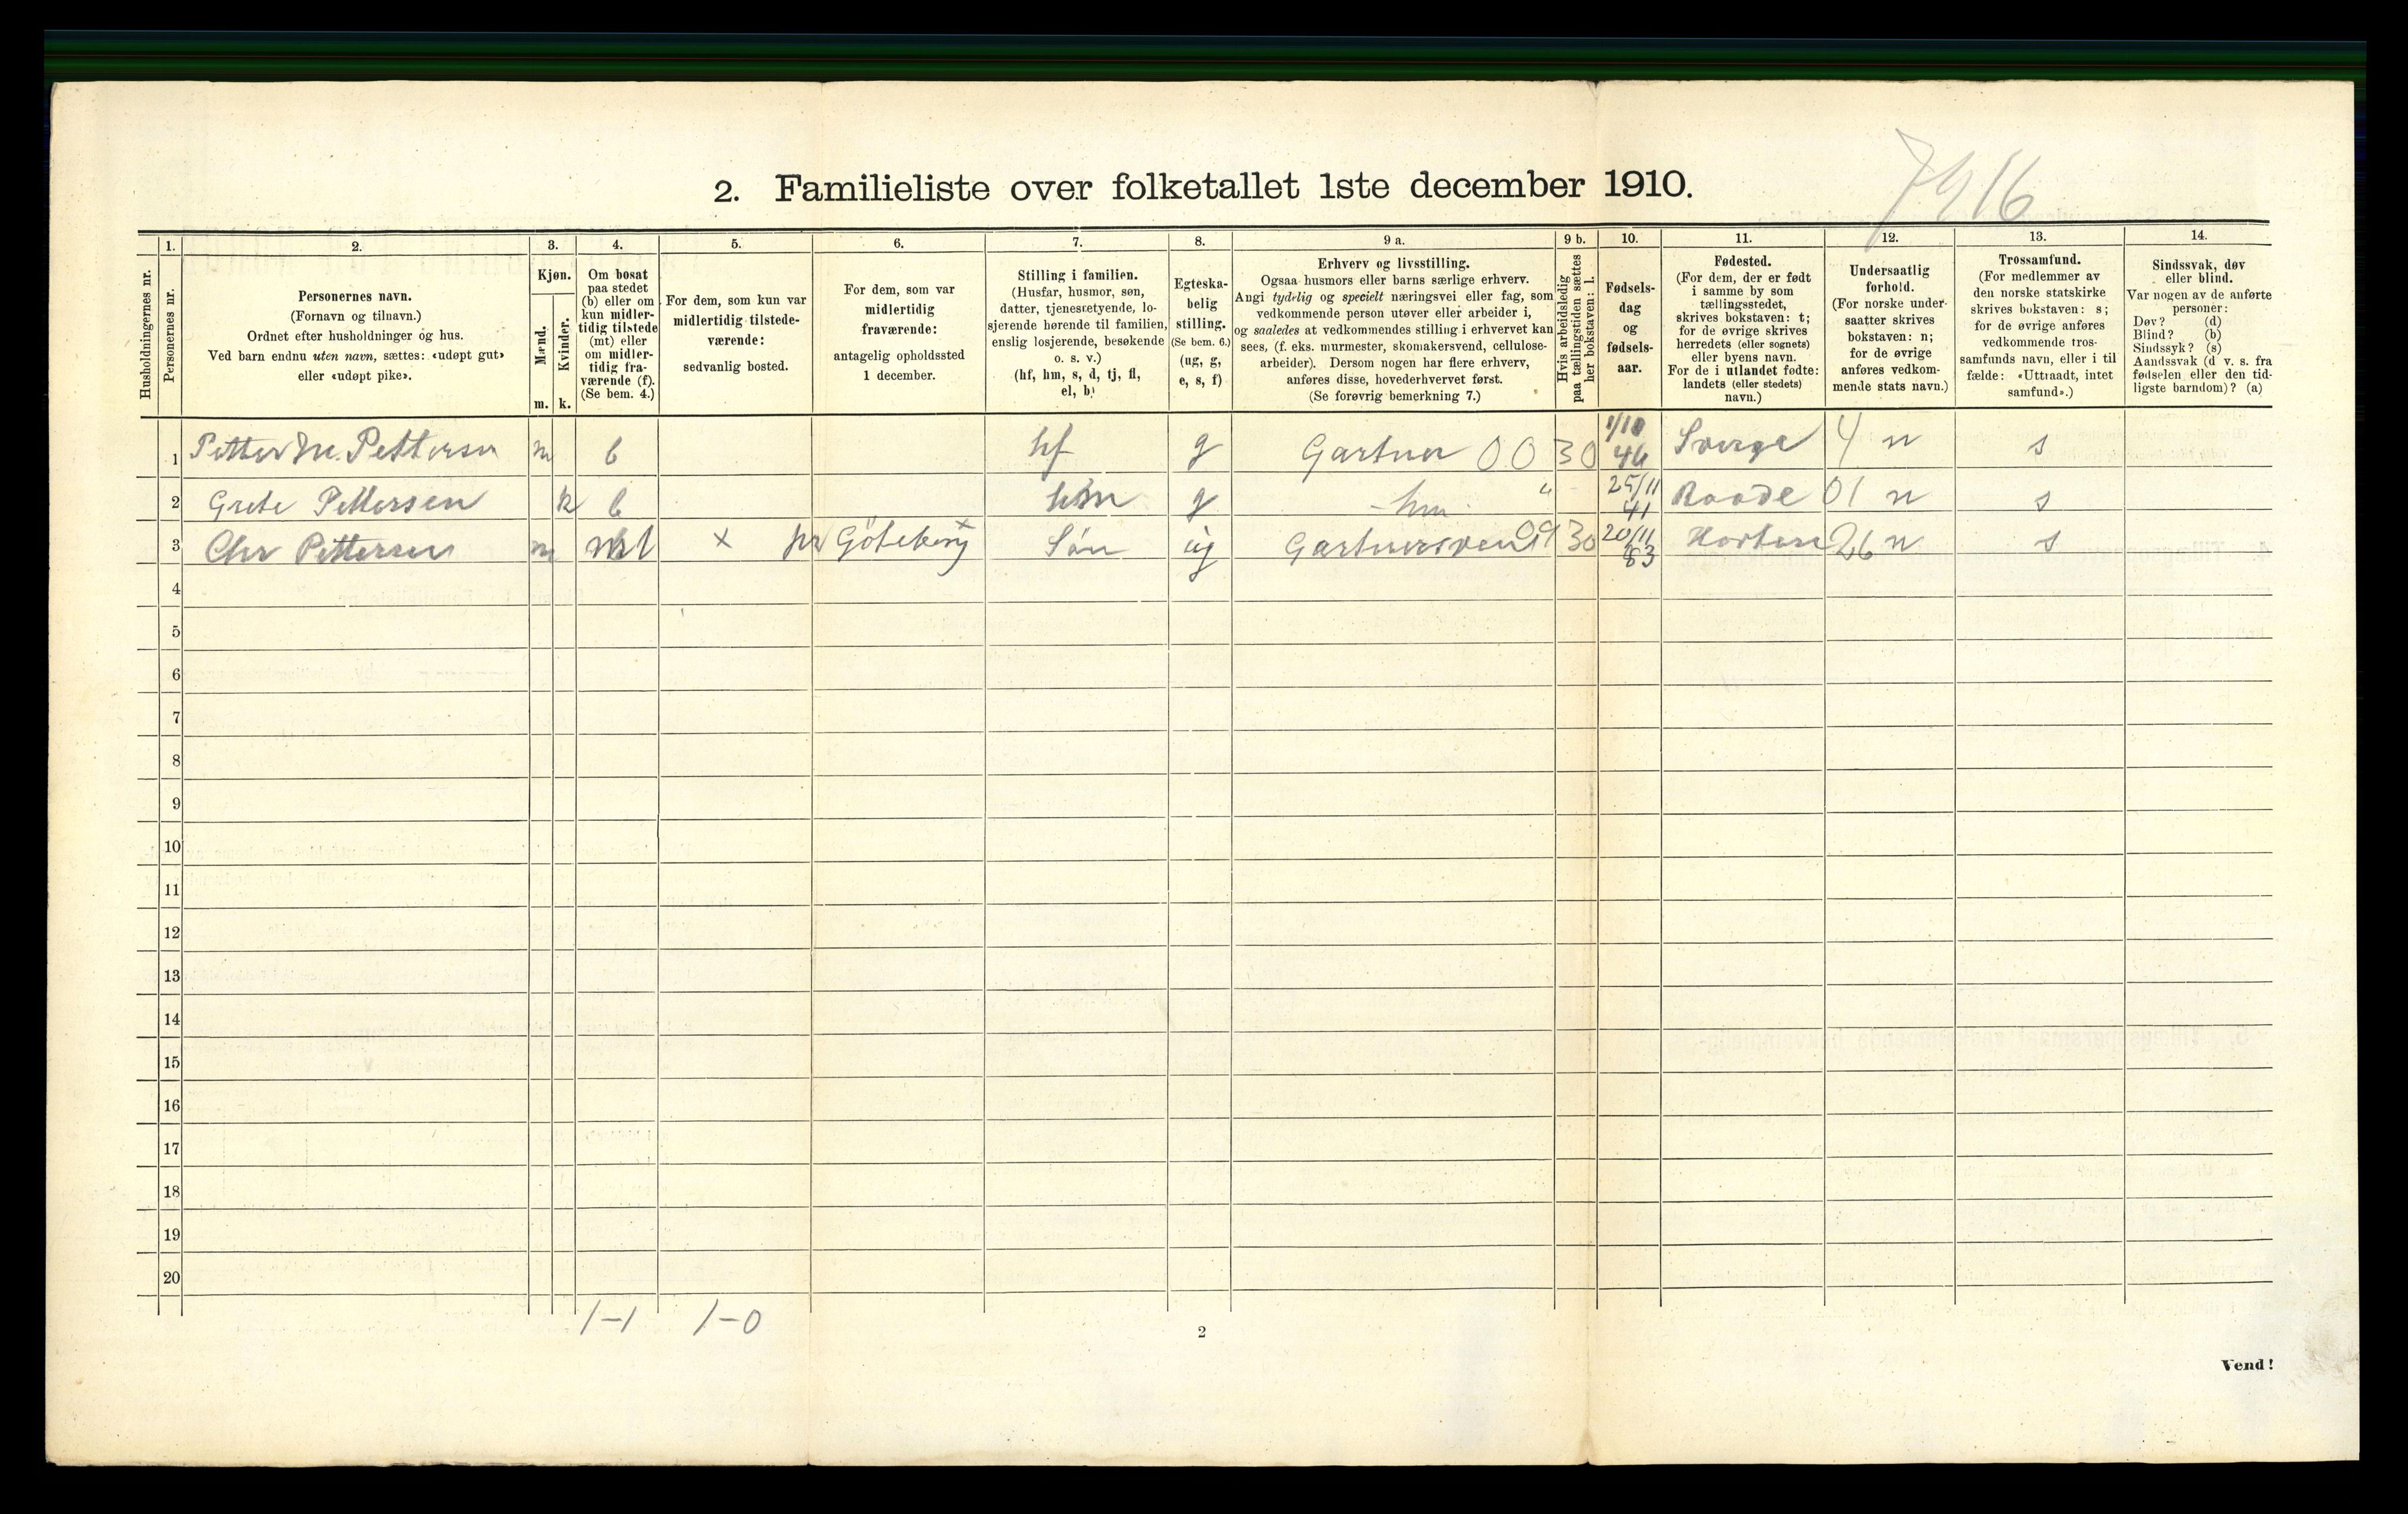 7916
2. Familieliste over folketallet 1ste december 1910.
Husholdningernes nr.
1. Personernes nr.
2. Personernes navn.
(Fornavn og tilnavn.)
Ordnet efter husholdninger og hus.
Ved barn endnu uten navn, sættes: «udøpt gut»
eller «udøpt pike».
3. Kjøn.
Mænd. m.
Kvinder. k.
4. Om bosat
paa stedet
(b) eller om
kun midler-
tidig tilstede
(mt) eller
om midler-
tidig fra-
værende (f).
(Se bem. 4.)
5. For dem, som kun var
midlertidig tilstede-
værende:
sedvanlig bosted.
6. For dem, som var
midlertidig
fraværende:
antagelig opholdssted
1 december.
7. Stilling i familien.
(Husfar, husmor, søn,
datter, tjenestetyende, lo-
sjerende hørende til familien,
enslig losjerende, besøkende
o. s. v.)
(hf, hm, s, d, tj, fl,
el, b)
8. Egteska-
belig
stilling.
(Se bem. 6.)
(ug, g,
e, s, f)
9 a. Erhverv og livsstilling.
Ogsaa husmors eller barns særlige erhverv.
Angi tydelig og specielt næringsvei eller fag, som
vedkommende person utøver eller arbeider i,
og saaledes at vedkommendes stilling i erhvervet kan
sees, (f. eks. murmester, skomakersvend, cellulose-
arbeider). Dersom nogen har flere erhverv,
anføres disse, hovederhvervet først.
(Se forøvrig bemerkning 7.)
9 b. Hvis arbeidsledig
paa tællingstiden sættes
her bokstaven: l.
10. Fødsels-
dag
og
fødsels-
aar.
11. Fødested.
(For dem, der er født
i samme by som
tællingsstedet,
skrives bokstaven: t;
for de øvrige skrives
herredets (eller sognets)
eller byens navn.
For de i utlandet fødte:
landets (eller stedets)
navn.)
12. Undersaatlig
forhold.
(For norske under-
saatter skrives
bokstaven: n;
for de øvrige
anføres vedkom-
mende stats navn.)
13. Trossamfund.
(For medlemmer av
den norske statskirke
skrives bokstaven: s;
for de øvrige anføres
vedkommende tros-
samfunds navn, eller i til
fælde: «Uttraadt, intet
samfund».)
14. Sindssvak, døv
eller blind.
Var nogen av de anførte
personer:
Døv? (d)
Blind? (b)
Sindssyk? (s)
Aandssvak (d v. s. fra
fødselen eller den tid-
ligste barndom)? (a)
1 Petter M. Pettersen m b hf g Gartner 00 30 1/10 46 Sverge 4 n s
2 Grete Pettersen k b hm g hm " 25/11 41 Raade 01 n s
3 Chr Pettersen m mt x Göteborg x Søn ug Gartnersvend 09 30 20/11 83 Horten 26 n s
4
5
6
7
8
9
10
11
12
13
14
15
16
17
18
19
20
1-1 1-0
2
Vend!